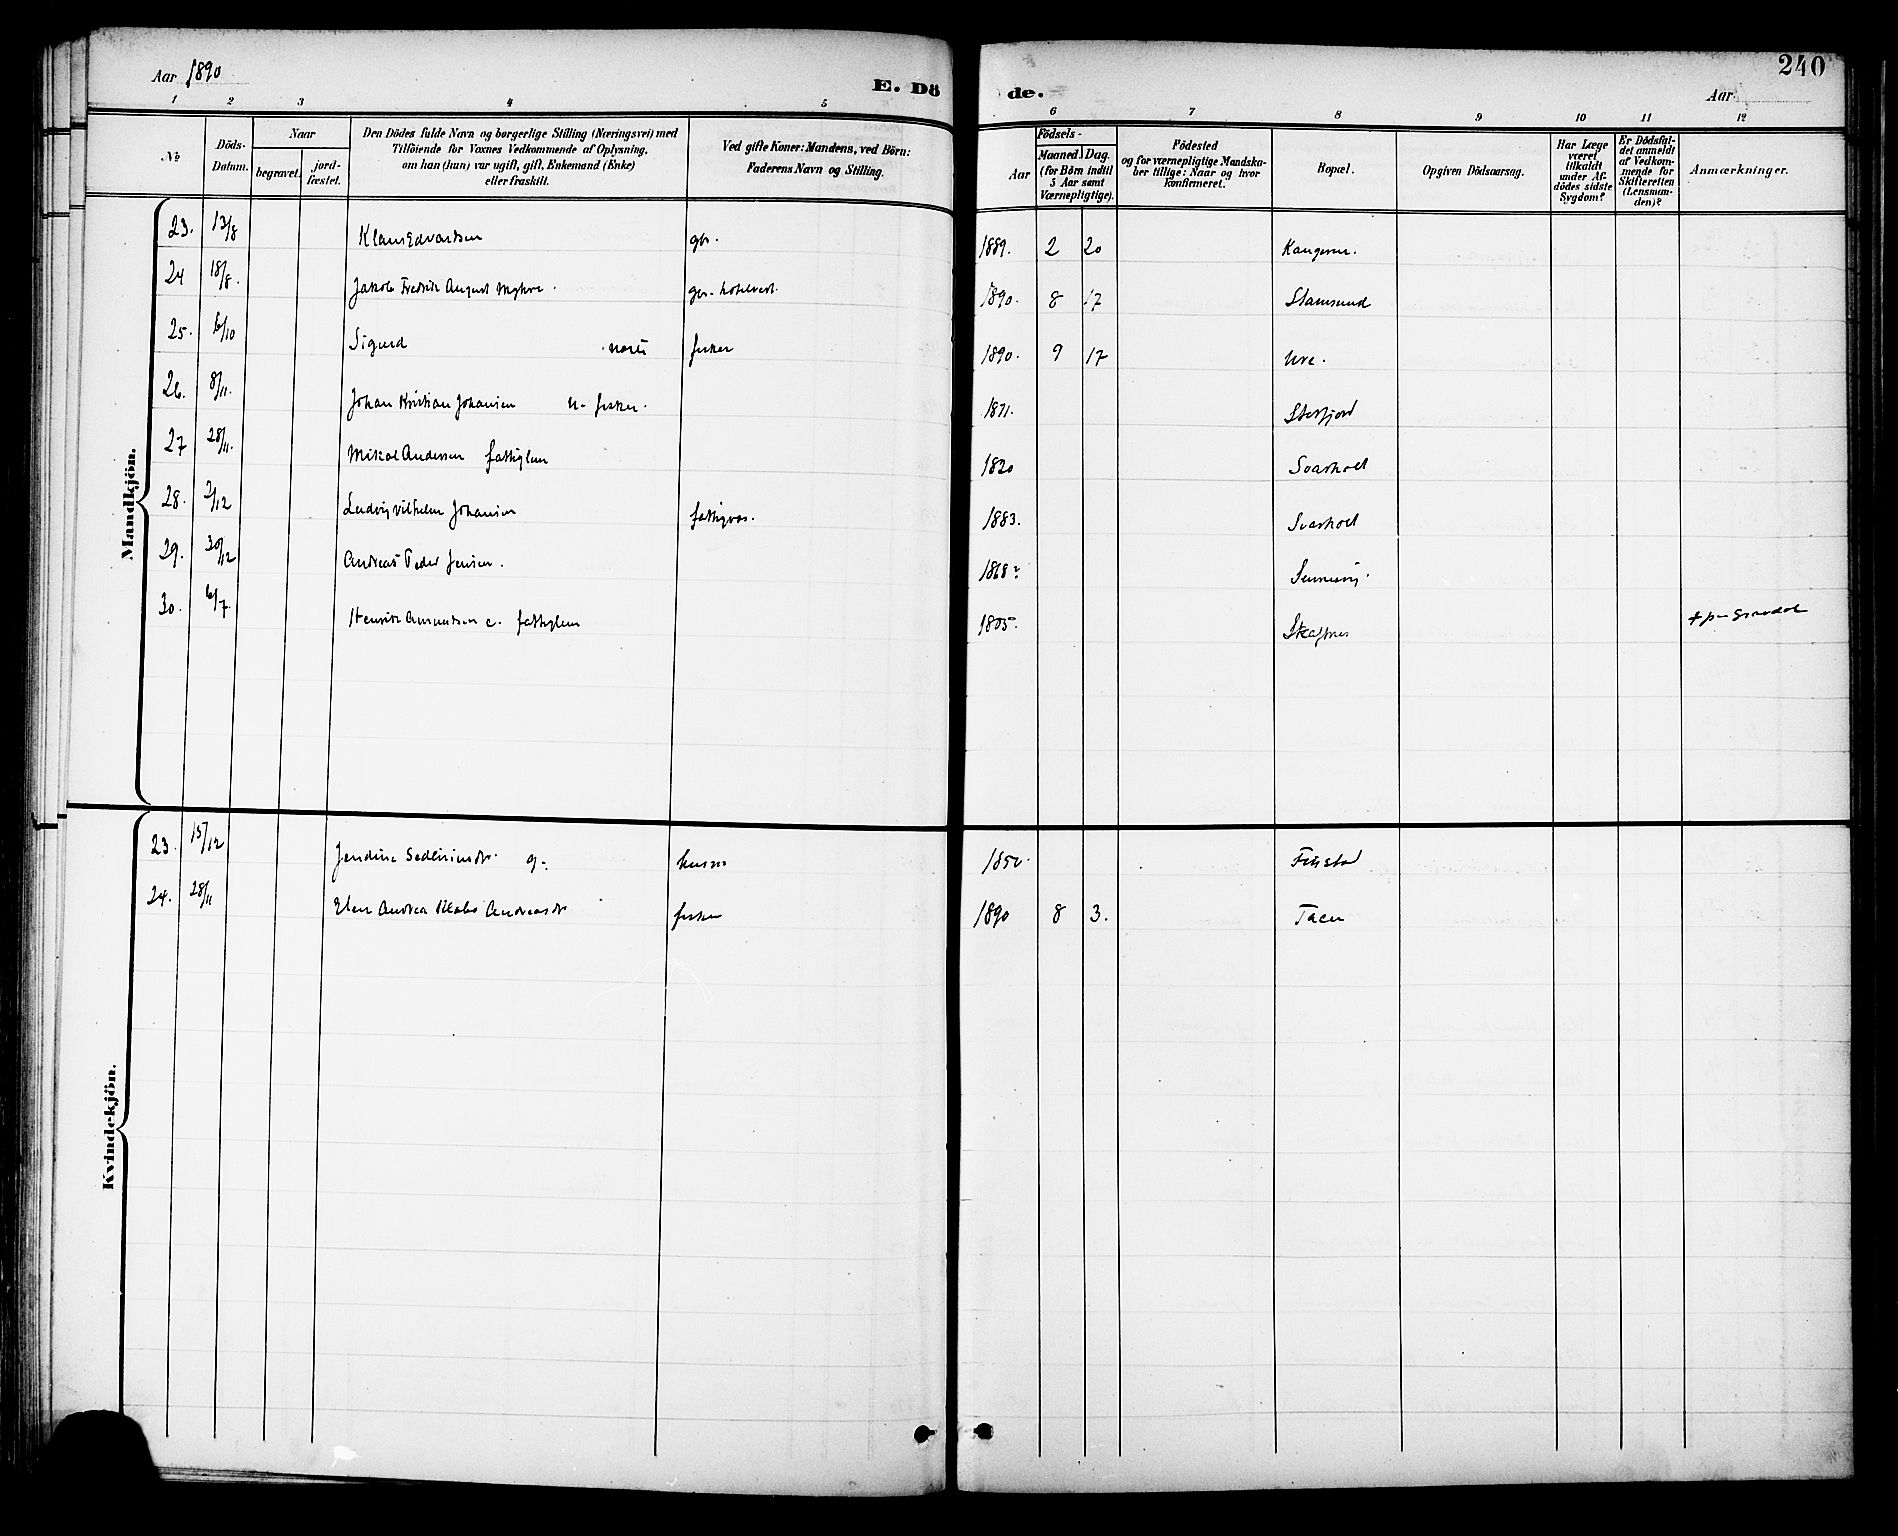 Aar 1890
E. Dö
de.
240
Aar
1 2 3 4 5
6 7 8 9 10 11 12
No
Döds-Datum.
Naar
begravet.
jord-fæstet.
Den Dödes fulde Navn og borgerlige Stilling (Næringsvei) med
Tilföiende for Voxnes Vedkommende af Oplysning,
om han (hun) var ugift, gift, Enkemand (Enke)
eller fraskilt.
Ved gifte Koner: Mandens, ved Börn:
Faderens Navn og Stilling.
Aar
Födsels-
Maaned. Dag.
(for Börn indtil
5 Aar samt
Værnepligtige).
Födested
og for værnepligtige Mandska-
ber tillige: Naar og hvor
konfirmeret.
Bopæl.
Opgiven Dödsaarsag.
Har Læge
været
tilkaldt
under Af-
dödes sidste
Sygdom?
Er Dödsfal-
det anmeldt
af Vedkom-
mende for
Skifteretten
(Lensman-
den)?
Anmærkninger.
Mandkjön.
23. 13/8 Klaus Edvardsen gbr. 1889. 2 20
24 18/8. Jakob Fredrik August gbr. hotelvert. 1890. 8 17 Stamsund
25. 6/10 Sigurd fisker 1890. 9 17 Ure.
26. 8/11. Johan Kristian Johansen u. fisker. 1871. Steefjord
27 28/11. Mikal Andersen fattiglem 1820 Svarholt
28. 2/12 Ludvig Vilhelm Johansen 1883. Svarholt
29. 30/12 Andreas Peder Jensen. 1868?
30. 6/7. Henrik Amundsen e. fattiglem 1805. Skafnes + paa Gravdal
Kvindekjön.
23. 15/12 g. husm Finstad
24. 28/11 Elen Andrea Andreasdr fisker 1890 8 3.